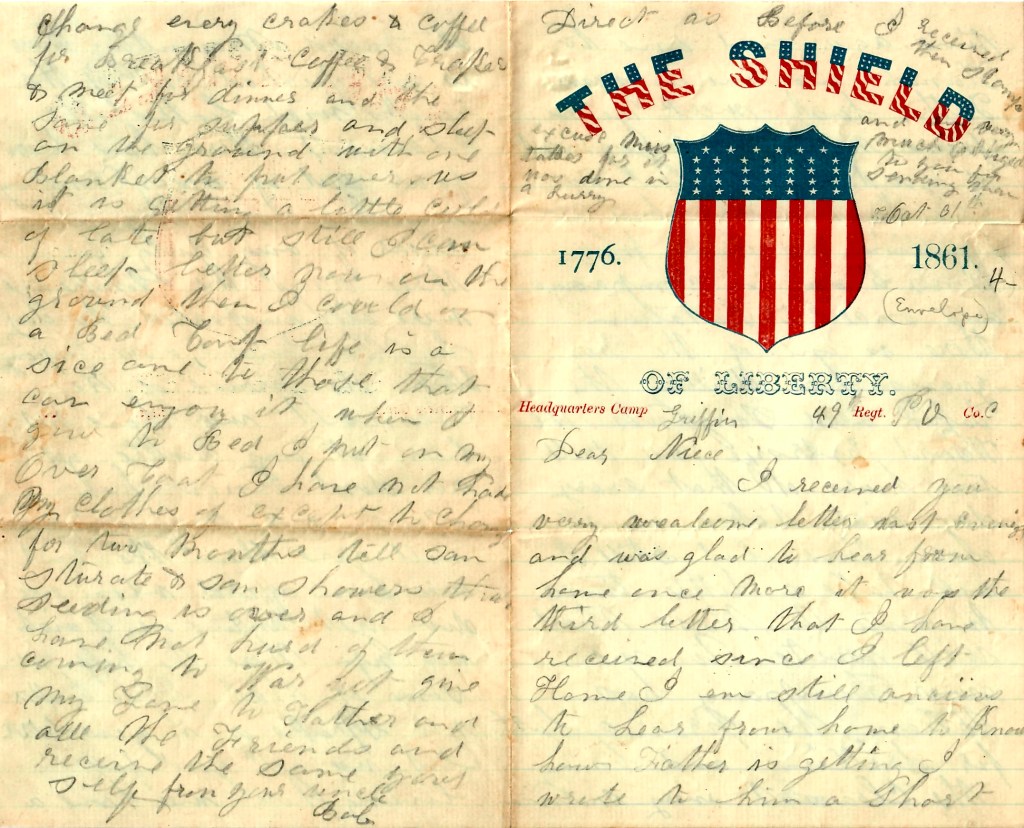 Change every crakes & coffee
for Breakfast Coffee & Crakes
& meet for dinner and the
Same for supper and sleep
on the ground with one
blanket to put over us
it is getting a little
of late but still I can
sleep better now on the
ground then I could on
a Bed Camp life is a
nice one to those that
can enjoy it when I
give to Bed I put on my
Over Coat I have not had
My clothes of except to chang
for two Months tell sam
& sam Showers that
Seeding is over and I
have Not hurd of them
coming to War yet give
my Love to Father and
all the Friends and
receive the same your
self from your uncle
Direct as Before I received
then Stamps
THE SHIELD
and very
much obliged
to you for
sending them
excuse Miss
takes for it
was done in
a hurry
Oct 31th
1776. 1861.
4
(Envelope)
OF LIBERTY.
Headquarters Camp Griffin 49 Regt. P V Co. C
Dear Niece
I received you
very wealcome letter last evening
and was glad to hear from
home once more it was the
third letter that I have
received, since I left
Home I em still anxious
to hear from home to Know
how Father is getting I
wrote to him a Short